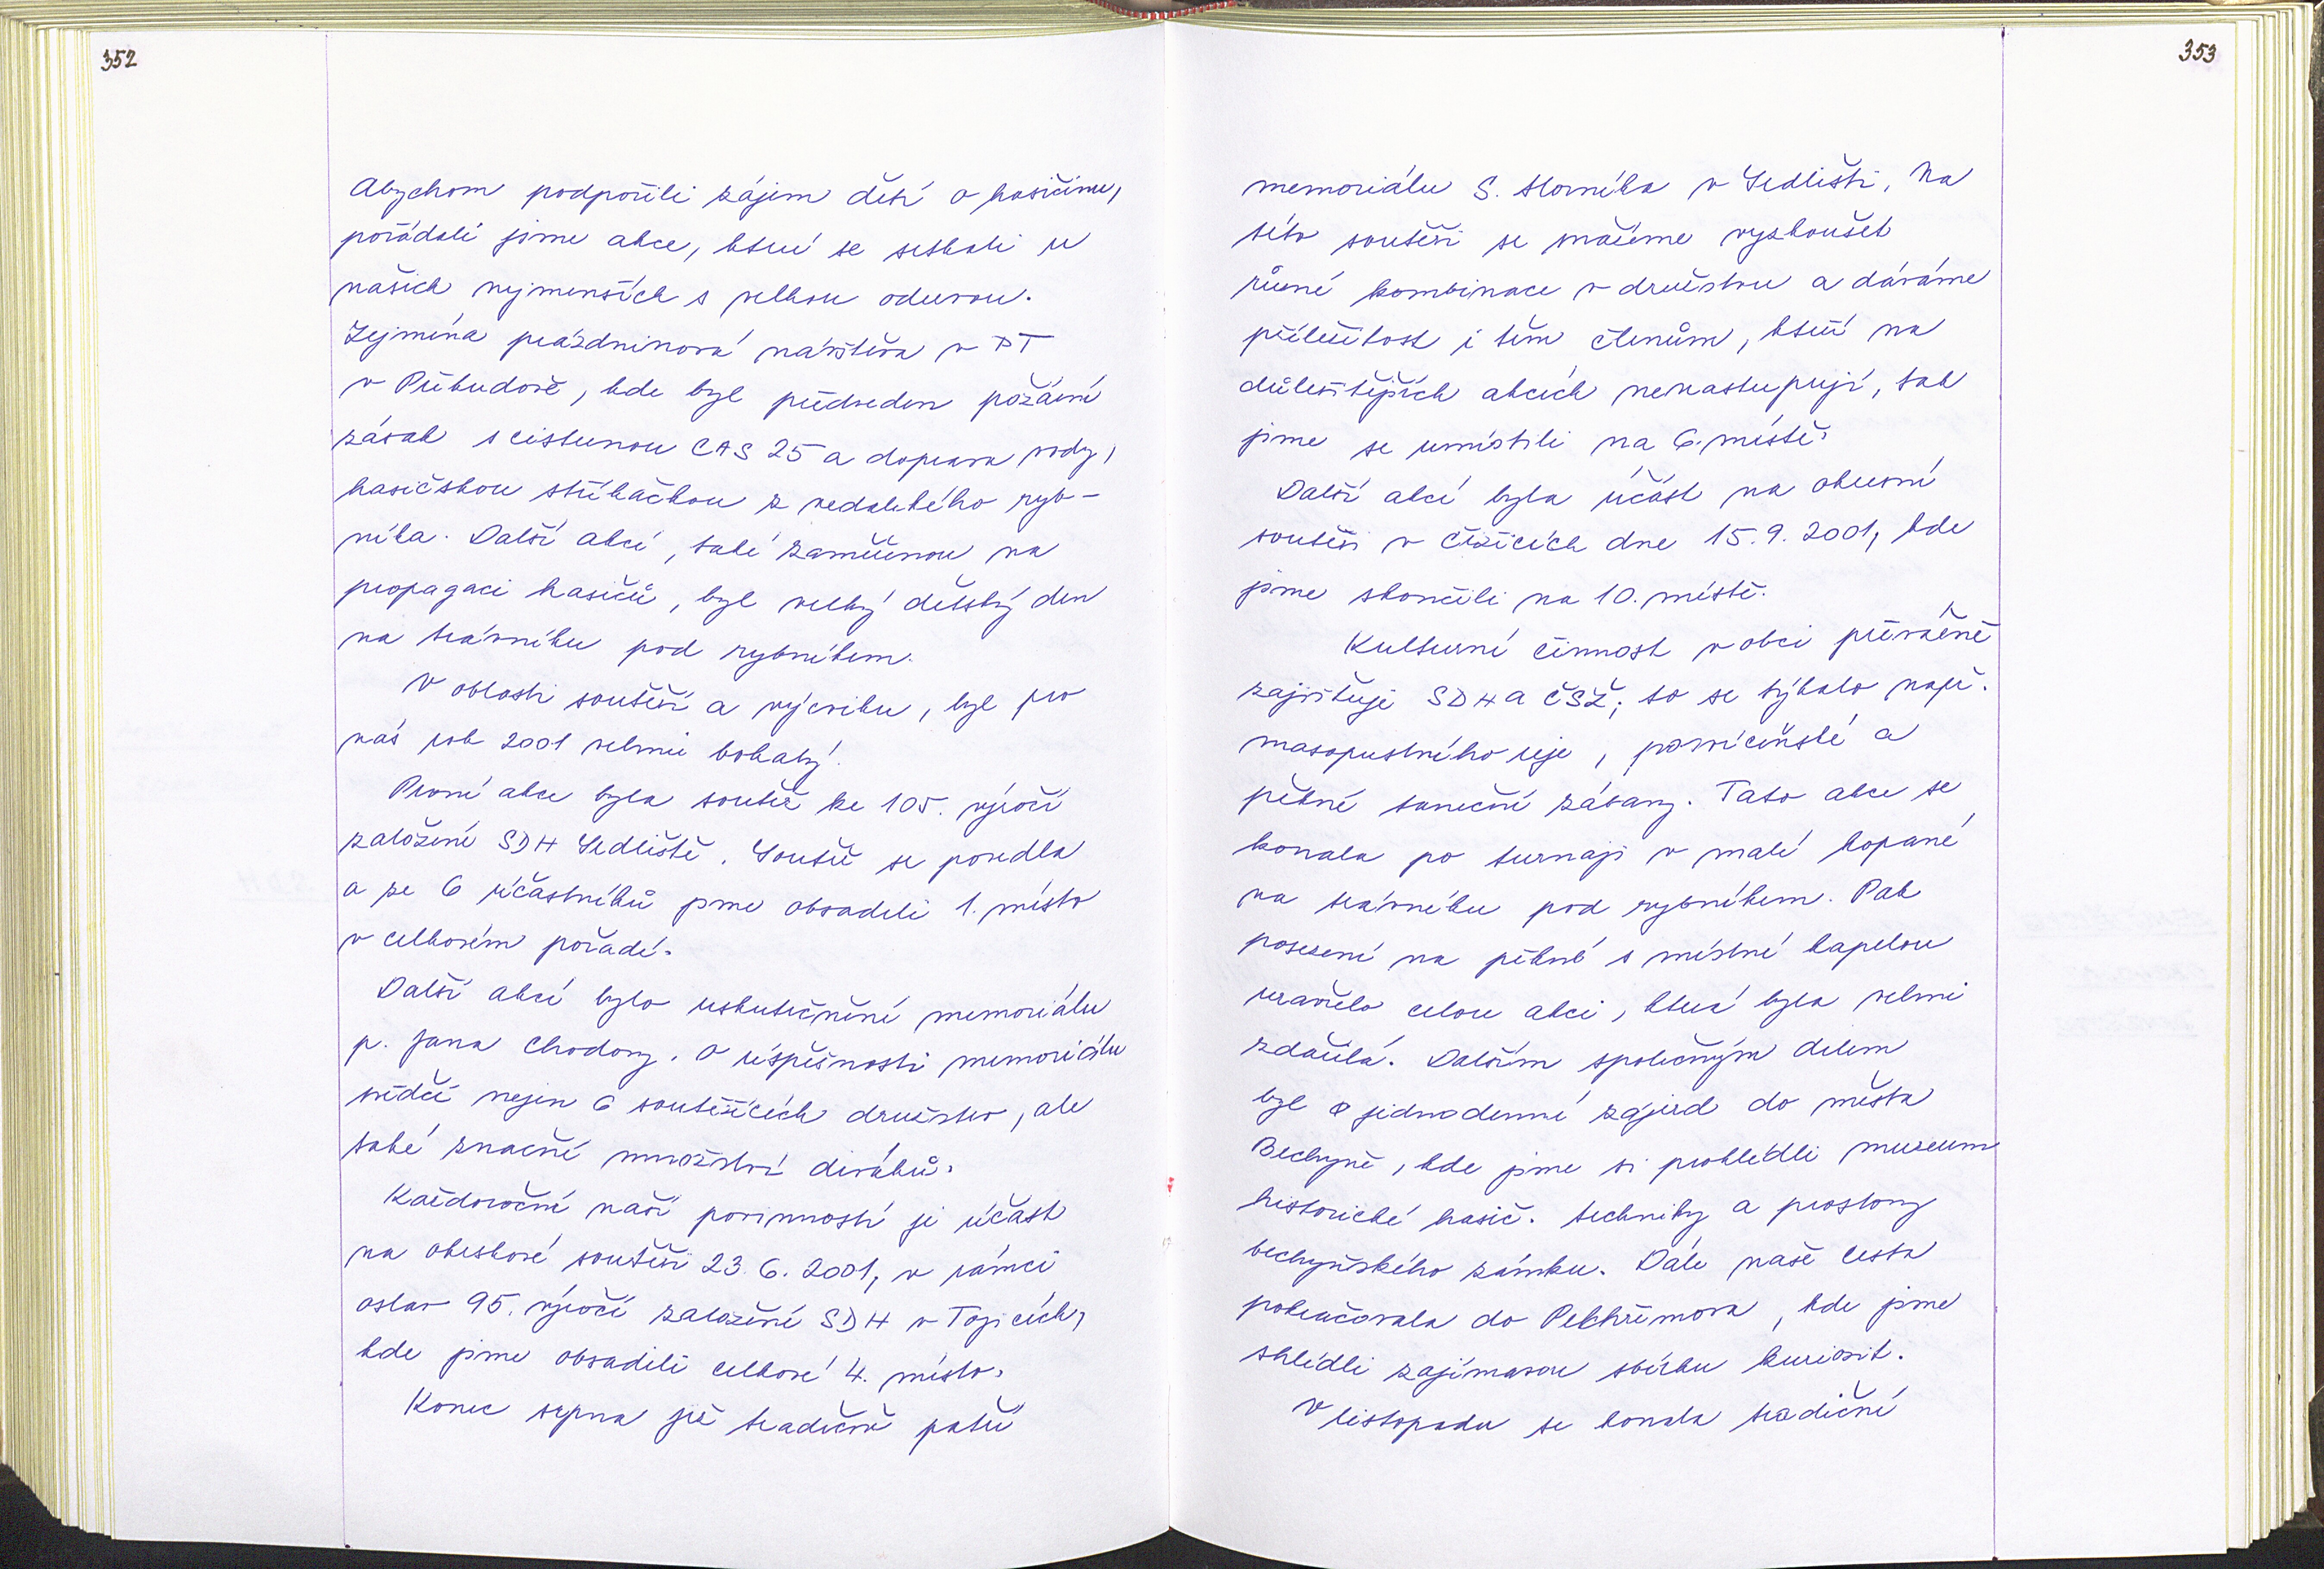 352
Abychom podpořili zájem dětí o hasičinu,
pořádali jsme akce, které se setkali u
našich nejmenších s velkou odezvou.
Zejména prázdninová návštěva v PT
v Příbudově, kde byl předveden požární
zásah s cisternou CAS 25 a doprava vody,
hasičskou stříkačkou z nedalekého ryb-
níka. Další akcí, také zaměřenou na
propagaci hasičů, byl velký dětský den
na trávníku pod rybníkem.
V oblasti soutěží a výcviku, byl pro
nás rok 2001 velmi bohatý.
První akce byla soutěž ke 105. výročí
založení SDH Sedliště. Soutěž se povedla
a ze 6 účastníků jsme obsadili 1. místo
v celkovém pořadí.
Další akcí bylo uskutečnění memoriálu
p. Jana Chodory. O úspěšnosti memoriálu
svědčí nejen 6 soutěžících družstev, ale
také značné množství diváků.
Každoroční naší povinností je účast
na okrskové soutěži 23.6.2001, v rámci
oslav 95. výročí založení SDH v Tojicích,
kde jsme obsadili celkově 4. místo.
Konec srpna již tradičně patří
353
memoriálu S. Slorníka v Sedlišti. Na
této soutěži se snažíme vyzkoušet
různé kombinace v družstvu a dáváme
příležitost i těm členům, kteří na
důležitějších akcích nenastupují, tak
jsme se umístili na 6. místě.
Další akcí byla účast na okresní
soutěži v Čížicích dne 15.9.2001, kde
jsme skončili na 10. místě.
Kulturní činnost v obci převážně
zajišťuje SDH a ČSŽ; to se týkalo např.
masopustního reje, posvícenské a
pěkné taneční zábavy. Tato akce se
konala po turnaji v malé kopané
na trávníku pod rybníkem. Pak
posezení na pěkně s místní kapelou
uzavřelo celou akci, která byla velmi
zdařilá. Dalším společným dílem
byl jednodenní zájezd do města
Bechyně, kde jsme si prohlédli muzeum
historické hasič. techniky a prostory
bechyňského zámku. Dále naše cesta
pokračovala do Pelhřimova, kde jsme
shlédli zajímavou sbírku kuriozit.
V listopadu se konala tradiční